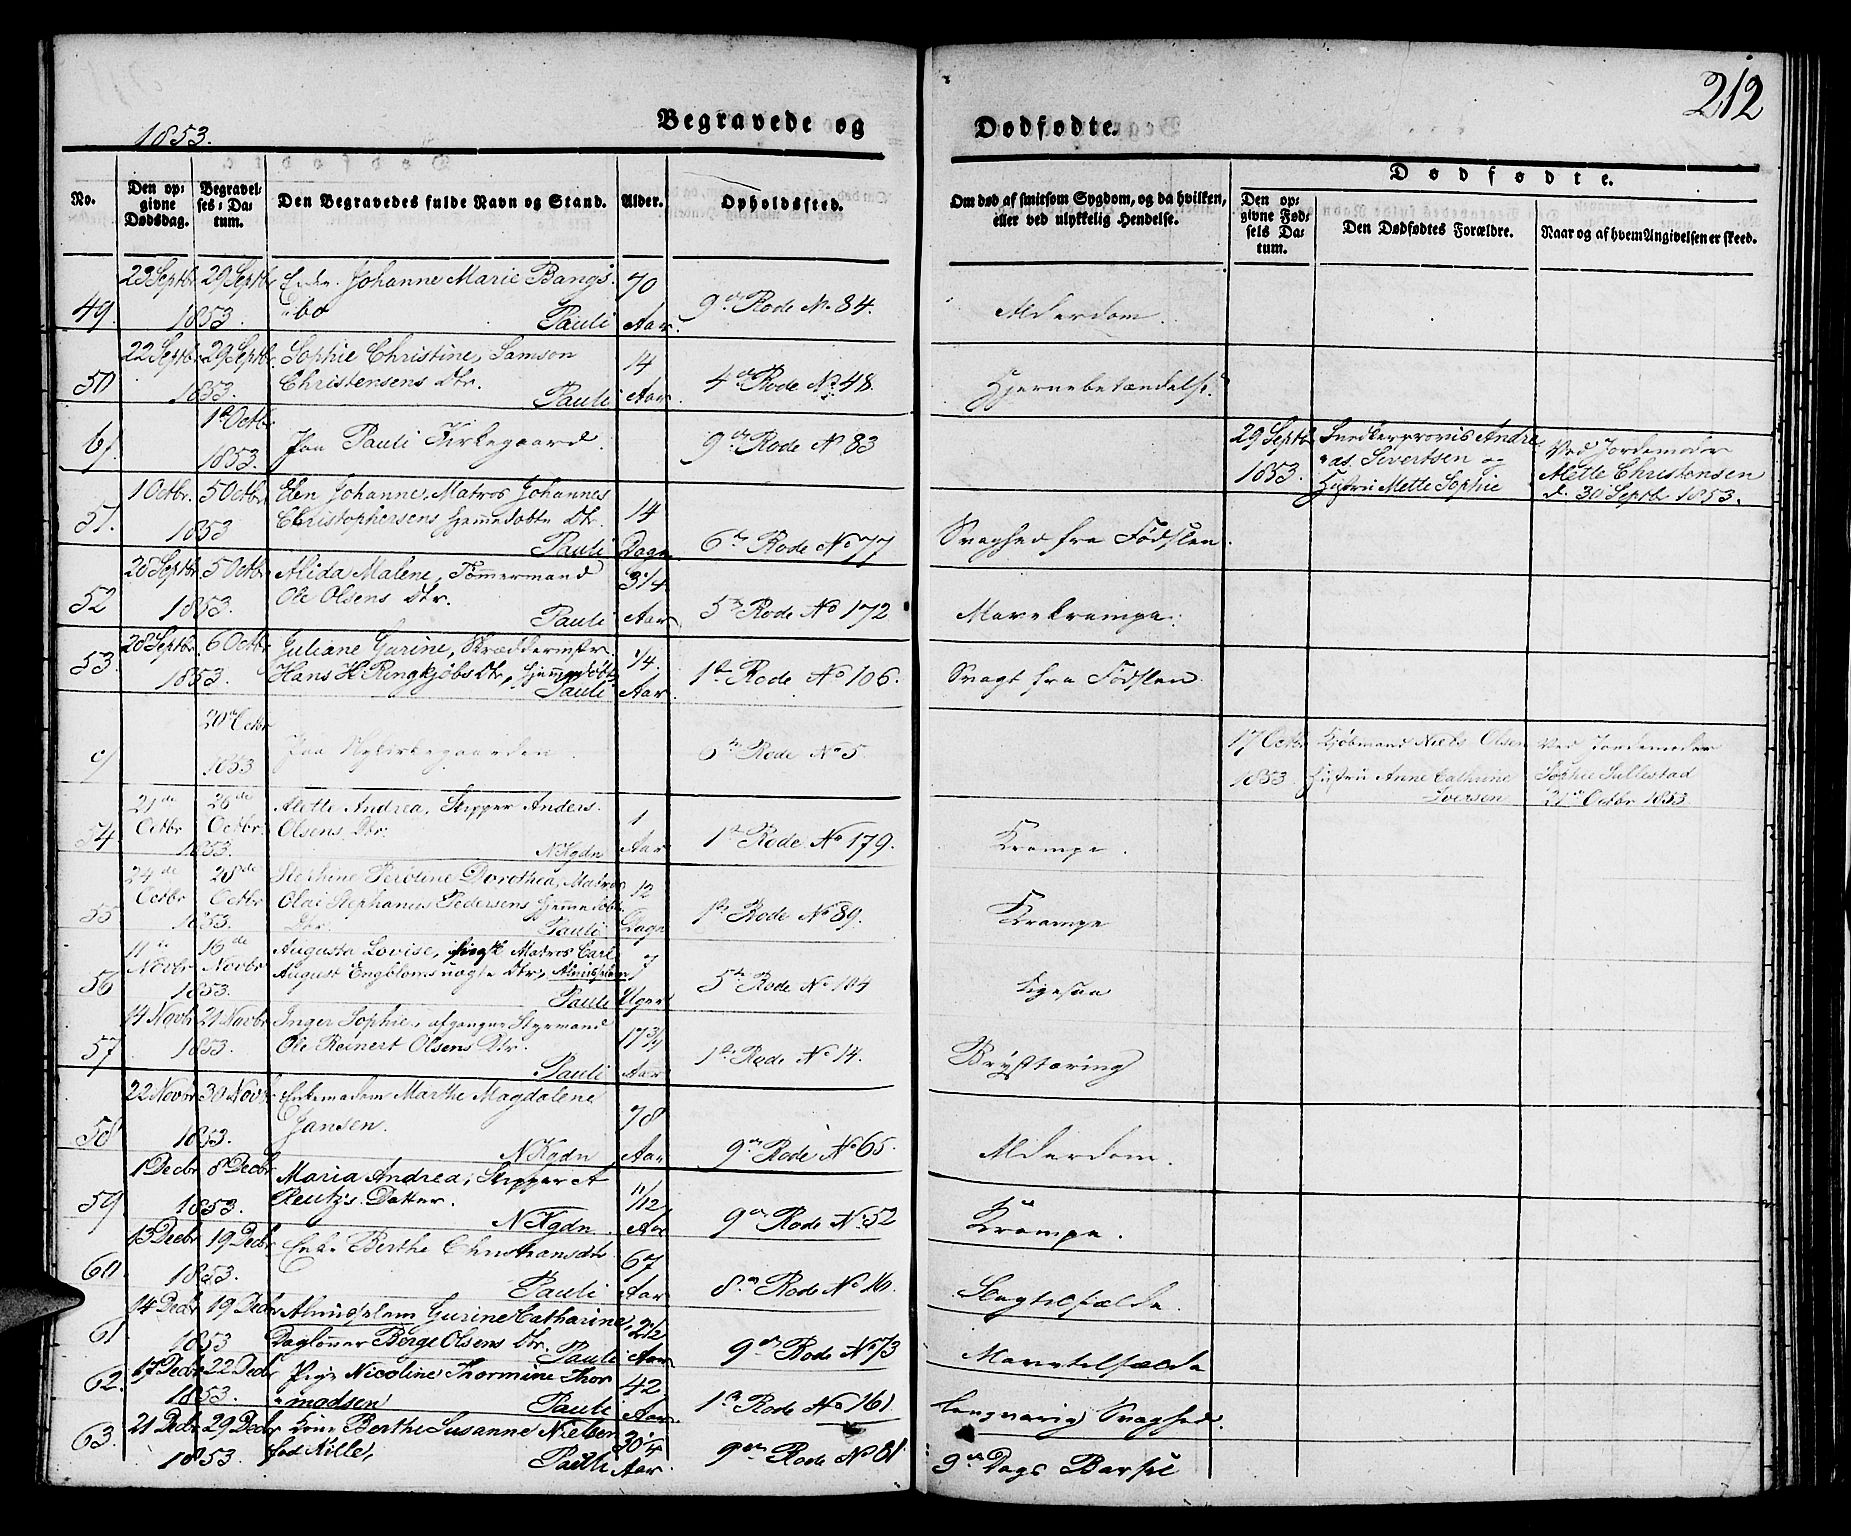 212
1853.
Begravede og Dødfødte.
No. Den opgivne Dødsdag. Begravelses-Datum. Den Begravedes fulde Navn og Stand. Alder. Opholdssted. Om død af smitsom Sygdom, og da hvilken, eller ved ulykkelig Hendelse.
Dødfødte.
Den opgivne Fødsels Datum. Den Dødfødtes Forældre. Naar og af hvem Angivelsen er skeed.
23 Septbr 29 Septbr Enken Johanne Marie Bangs- 70
49. 1853. bo Pauli Aar. 9de Rode No 84. Alderdom.
22 Septbr 29 Septbr. Sophie Christine, Samson 14
50 1853. Christensens Dtr. Pauli Aar 4de Rode No 48. Hjernebetændelse.
1ste Octbr
6/ 1853. Paa Pauli Kirkegaard. 9de Rode No 83
29 Septbr Snedkersvend Andre- Ved Jordemoder
1853. as Sivertsen og Mette Christensen
Hustru Mette Sophie d. 30 Septbr 1853.
1 Octbr. 5 Octbr. Elen Johanne, Matros Johannes 14
51. 1853 Christophersens hjemmedøbte Dtr. Pauli Dage 6te Rode No 77 Svaghed fra Fødslen.
28 Septbr 5 Octbr. Alida Malene, Tømmermand 3 1/4
52 1853. Ole Olsens Dtr. Pauli Aar 5te Rode No 172 Mavekrampe.
28 Septbr. 6 Octbr. Juliane Gurine, Skræddermstr. 1/4
53. 1853. Hans H Ringkjøbs Dtr, hjemmedøbt Pauli Aar. 1ste Rode No 106. Svagt fra Fødslen.
20de Octbr
c/ 1853 Paa Nykirkegaarden 6te Rode No 5.
17 Octbr Kjøbmand Niels Olsen Ved Jordemoder
1853. Hustru Anne Cathrine Sophie Sullestad
Iversen 21de Octbr 1853.
21de 26de Mette Andrea, Skipper Anders 1
54 Octbr Octbr. Olsens Dtr.
1853. N Kgdn Aar 1ste Rode No 179. Krampe.
24de 28de Stephine Peroline Dorothea, Matros 12
55 Octbr Octbr Olai Stephanus Pedersens hjemmedøbte
1853. Dtr. Pauli Dage 1ste Rode No 89. Krampe
11te 16de Augusta Lovise, Matros Carl 7
56 Novbr Novbr August Engbloms uægte Dtr, Almisselem
1853. Pauli Uger 5te Rode No 104 Ligesaa
14 Novbr 21 Novbr Inger Sophie, afgangne Styrmand 17 3/4
57 1853. Ole Reinert Olsens Dtr. Pauli Aar 1ste Rode No 14. Brysttæring
22 Novbr 30 Novbr Enkemadam Marthe Magdalene 78
58 1853. Jansen. N Kgdn Aar 9de Rode No 65. Alderdom.
1 Decbr 8 Decbr Maria Andrea, Skipper A 11/12
59 1853. Reutz's Datter. N Kgdn. Aar 9de Rode No 52 Krampe.
13 Decbr 19 Decbr Enke Berthe Christiansdtr 67
60. 1853. Pauli Aar 8de Rode No 16. Slagtilfælde.
14 Decbr 19 Decbr Almisselem Gurine Catharine, 2 1/2
61 1853 Dagløner Børge Olsens Dtr. Pauli Aar 9de Rode No 73 Mavetilfælde
17 Decbr 22 Decbr Pige Nicoline Thormine Thor- 42
62. 1853. modsen Pauli Aar. 1ste Rode No 161 Langvarig Svaghed.
21 Decbr 29 Decbr Kone Berthe Susanne Nielsen 30 1/4
63. 1853. fød Aille, Pauli Aar. 9de Rode No 81 9de Dags Barsel